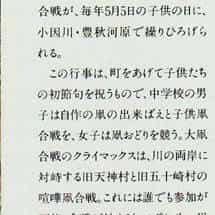 合戦が、毎年5月5日の子供の日に、
小因川・豊秋河原で繰りひろげら
れる。
この行事は、町をあげて子供たち
の初節句を祝うもので、中学校の男
子は自作の凧の出来ばえと子供凧
合戦を、女子は凧おどりを競う。大凧
合戦のクライマックスは、川の両岸に
対峙する旧天神村と旧五十崎村の
喧嘩凧合戦。これには誰でも参加が